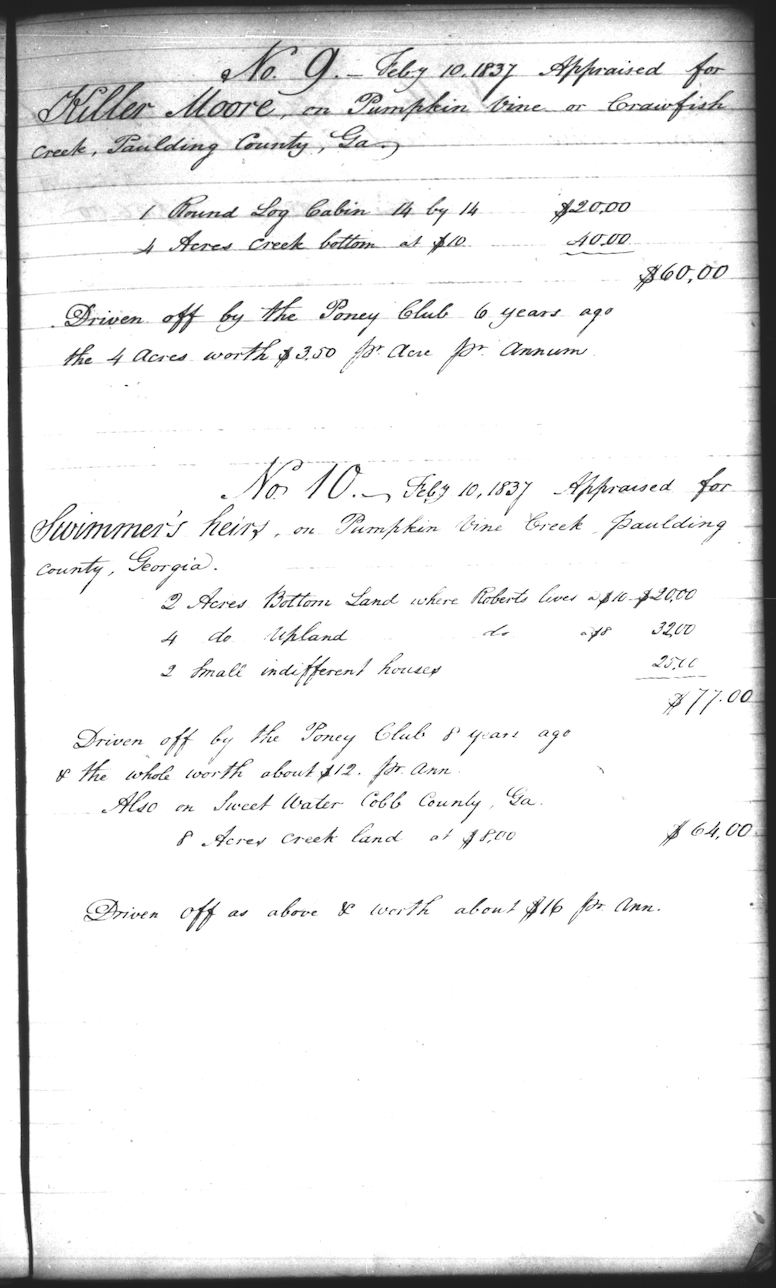 No. 9. – Feby 10, 1837 Appraised for
Killer Moore, on Pumpkin Vine or Crawfish
Creek, Paulding County, Ga.
1 Round Log Cabin 14 by 14 $20,00
4 Acres creek bottom at $10 40.00
$60,00
Driven off by the Poney Club 6 years ago
the 4 Acres worth $3.50 pr. Acre pr. Annum
No 10. – Feby 10, 1837 Appraised for
Swimmer's heirs, on Pumpkin Vine Creek Paulding
county, Georgia.
2 Acres Bottom Land where Roberts lives a $10 $20,00
4 do Upland do a $8 32,00
2 Small indifferent houses 25.00
$77.00
Driven off by the Poney Club 8 years ago
& the whole worth about $12. pr. Ann
Also on Sweet Water Cobb County, Ga.
8 Acres creek land at $8,00 $64,00
Driven off as above & worth about $16 pr. Ann.